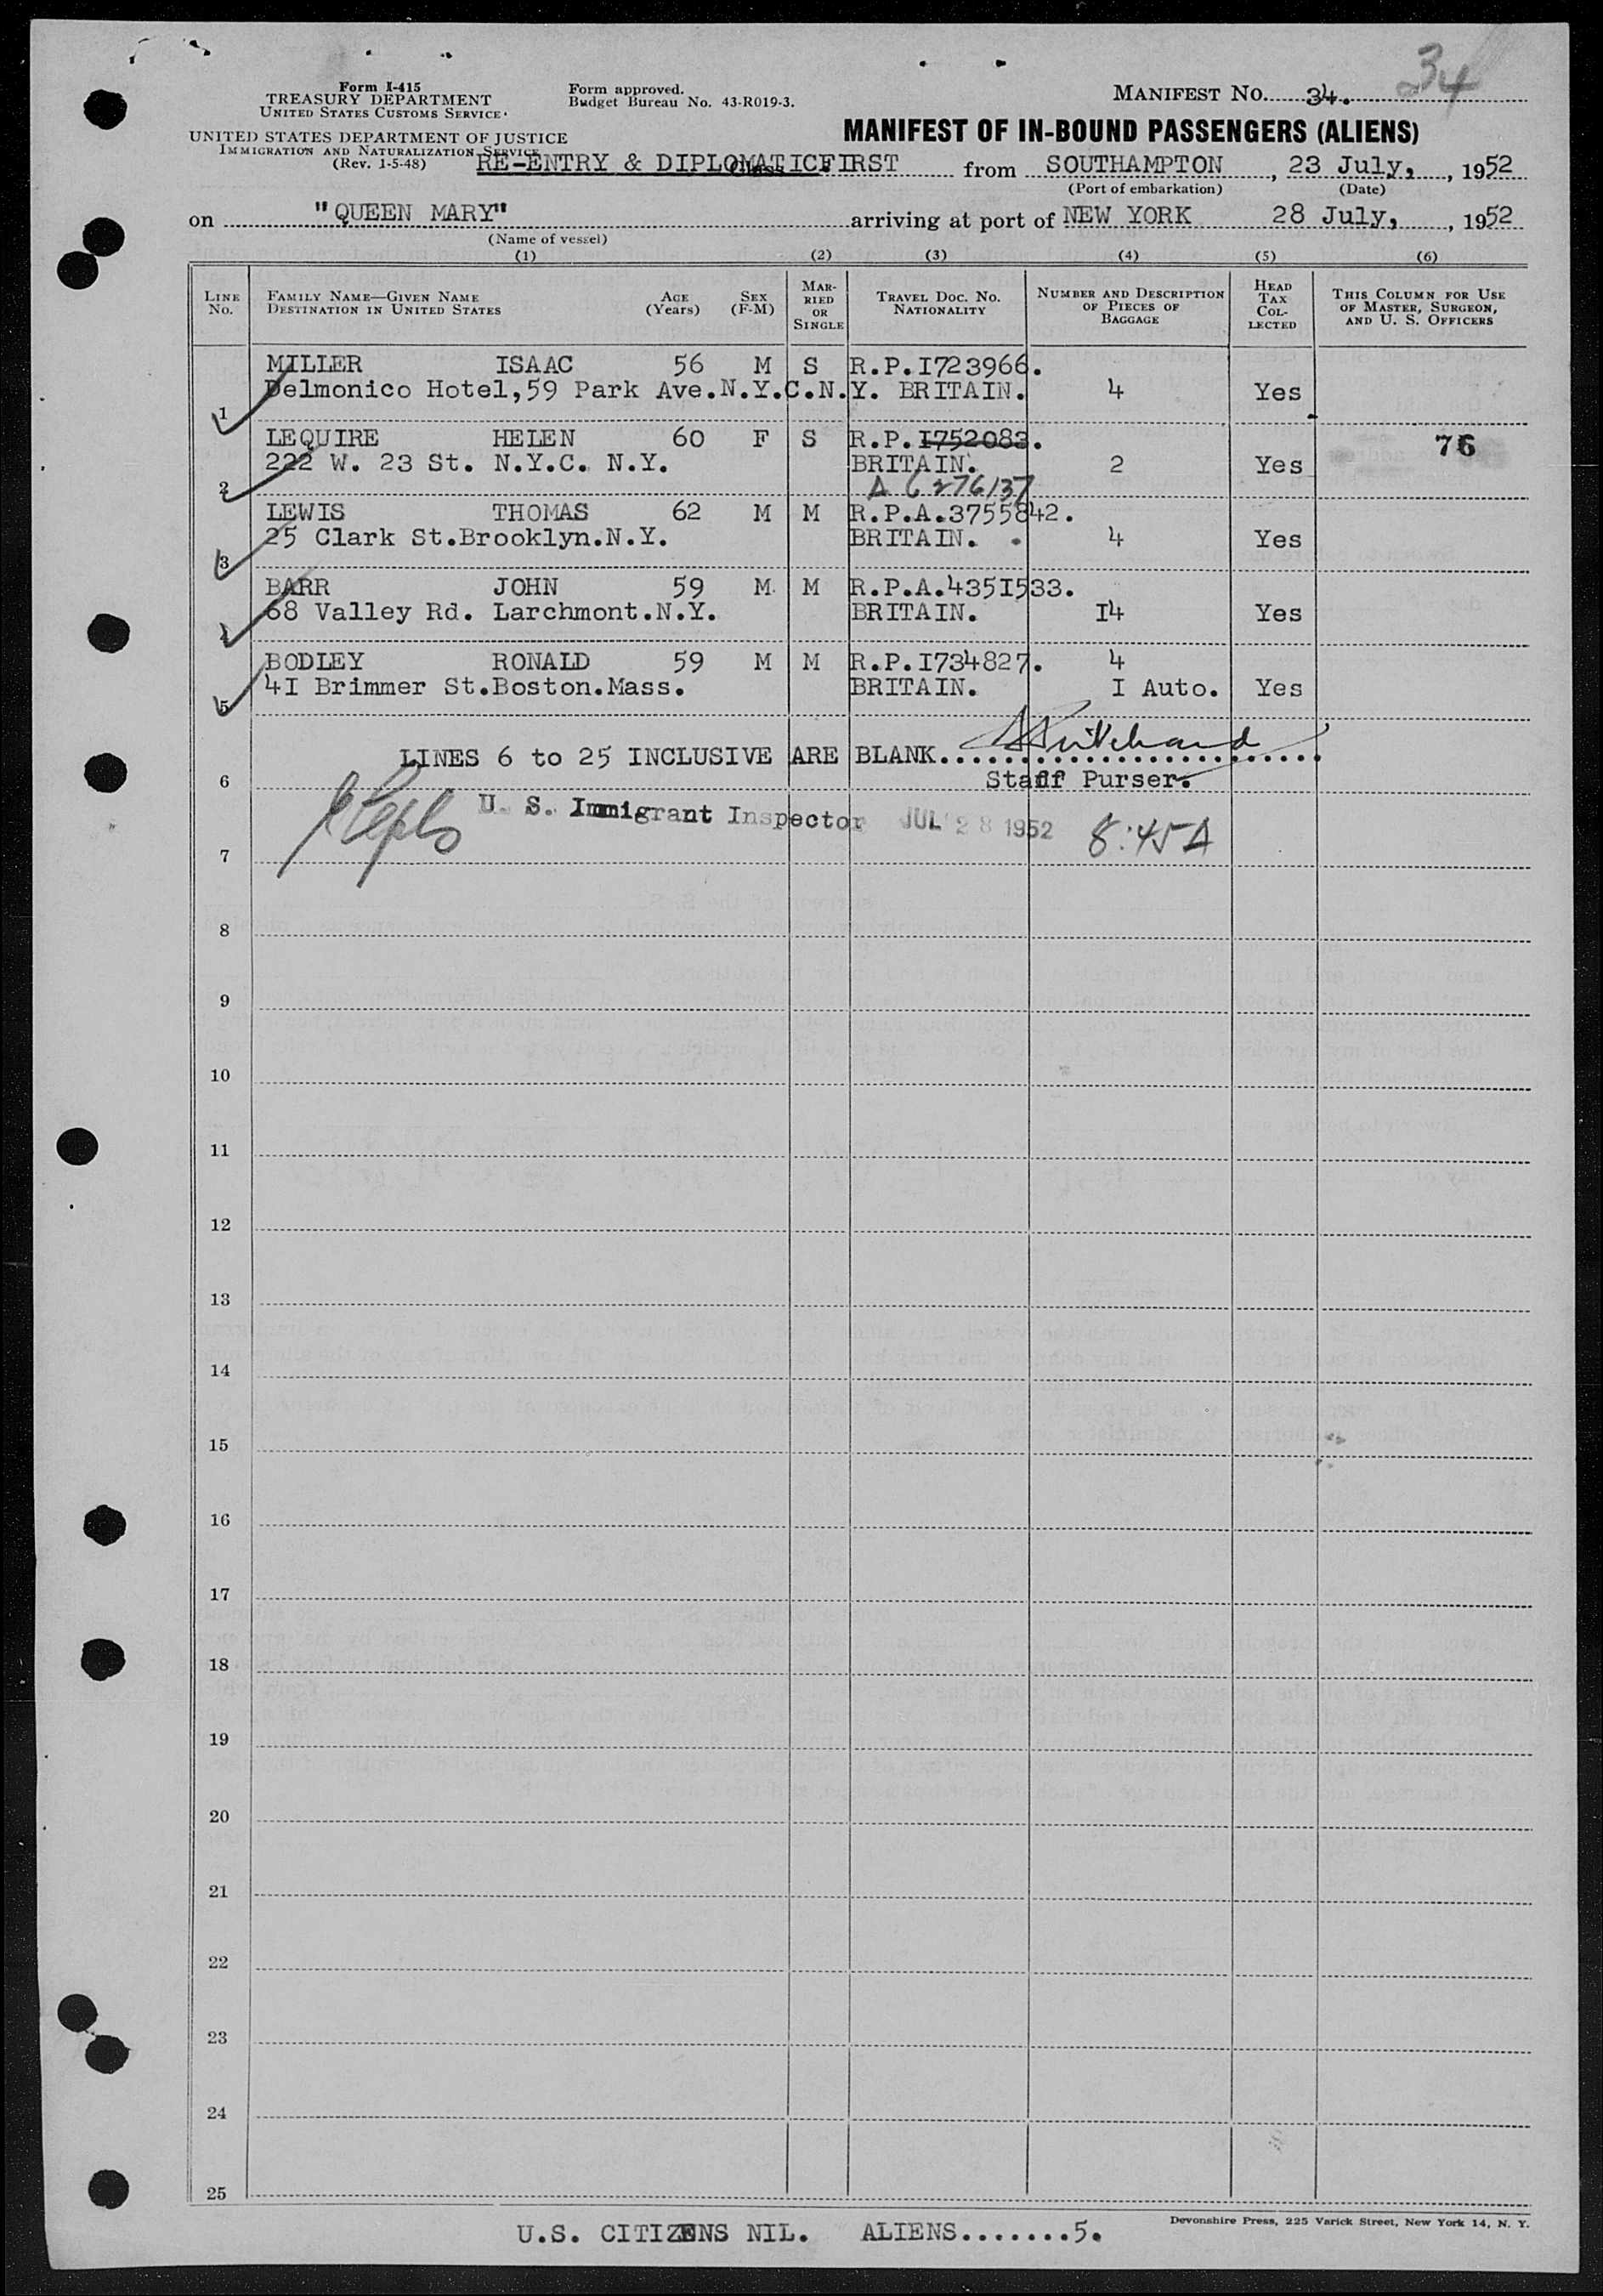 34
Form I-415
TREASURY DEPARTMENT
UNITED STATES CUSTOMS SERVICE
UNITED STATES DEPARTMENT OF JUSTICE
IMMIGRATION AND NATURALIZATION SERVICE
(Rev. 1-5-48)
Form approved.
Budget Bureau No. 43-R019-3.
MANIFEST NO. 34.
MANIFEST OF IN-BOUND PASSENGERS (ALIENS)
RE-ENTRY & DIPLOMATIC FIRST from SOUTHAMPTON, 23 July, 1952
(Port of embarkation) (Date)
on "QUEEN MARY" arriving at port of NEW YORK 28 July, 1952
(Name of vessel)
(1) (2) (3) (4) (5) (6)
LINE NO.
FAMILY NAME—GIVEN NAME
DESTINATION IN UNITED STATES
AGE (YEARS)
SEX (F-M)
MAR-RIED OR SINGLE
TRAVEL DOC. NO. NATIONALITY
NUMBER AND DESCRIPTION OF PIECES OF BAGGAGE
HEAD TAX COL-LECTED
THIS COLUMN FOR USE OF MASTER, SURGEON, AND U. S. OFFICERS
MILLER ISAAC 56 M S R.P.I723966.
Delmonico Hotel,59 Park Ave.N.Y.C.N.Y. BRITAIN. 4 Yes
1
LEQUIRE HELEN 60 F S R.P.I752083. 76
222 W. 23 St. N.Y.C. N.Y. BRITAIN. 2 Yes
2 A6276137
LEWIS THOMAS 62 M M R.P.A.3755842.
25 Clark St.Brooklyn.N.Y. BRITAIN. 4 Yes
3
BARR JOHN 59 M M R.P.A.4351533.
68 Valley Rd. Larchmont.N.Y. BRITAIN. I4 Yes
4
BODLEY RONALD 59 M M R.P.I734827. 4
4I Brimmer St.Boston.Mass. BRITAIN. I Auto. Yes
5
LINES 6 to 25 INCLUSIVE ARE BLANK. Pritchard
6 Staff Purser.
U. S. Immigrant Inspector JUL 28 1952 8:45A
7
8
9
10
11
12
13
14
15
16
17
18
19
20
21
22
23
24
25
U.S. CITIZENS NIL. ALIENS.......5.
Devonshire Press, 225 Varick Street, New York 14, N. Y.